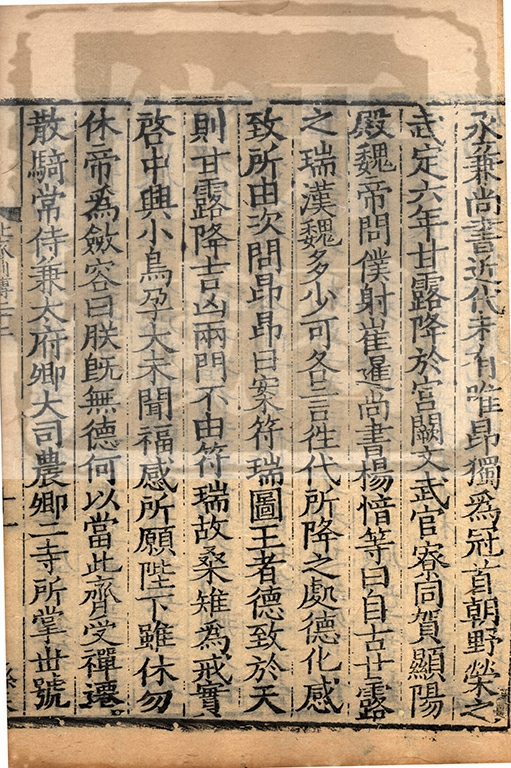 丞兼尚書近代未有唯昂獨為冠首朝野榮之
武定六年甘露降於宮闕文武官寮同賀顯陽
殿魏帝問僕射崔暹尚書楊愔等曰自古甘露
之瑞漢魏多少可各言徃代所降之處德化感
致所由次問昂昂曰案符瑞圖王者德致於天
則甘露降吉凶兩門不由符瑞故桑雉為戒實
啓中興小鳥孕大未聞福感所願陛下雖休勿
休帝為斂容曰朕旣無德何以當此齊受禪遷
散騎常侍兼太府卿大司農卿二寺所掌世號